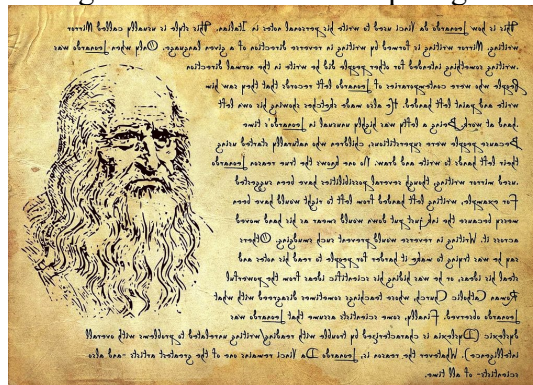 This is how Leonardo da Vinci used to write his personal notes in Italian. This style is usually called Mirror
writing. Mirror writing is formed by writing in reverse direction of a given language. Only when Leonardo was
writing something intended for other people did he write in the normal direction.
People who were contemporaries of Leonardo left records that they saw him
write and paint left handed. He also made sketches showing his own left
hand at work. Being a lefty was highly unusual in Leonardo's time
Because people were superstitious, children who naturally started using
their left hands to write and draw. No one knows the true reason Leonardo
used mirror writing, though several possibilities have been suggested
For example, writing left handed from left to right would have been
messy because the ink just put down would smear as his hand moved
across it. Writing in reverse would prevent such smudging. Others
say he was trying to make it harder for people to read his notes and
steal his ideas, or he was hiding his scientific ideas from the powerful
Roman Catholic Church, whose teachings sometimes disagreed with what
Leonardo observed. Finally, some scientists assume that Leonardo was
dyslexic (Dyslexia is characterized by trouble with reading/writing unrelated to problems with overall
intelligence). Whatever the reason is, Leonardo Da Vinci remains one of the greatest artists -and also
scientists- of all time.